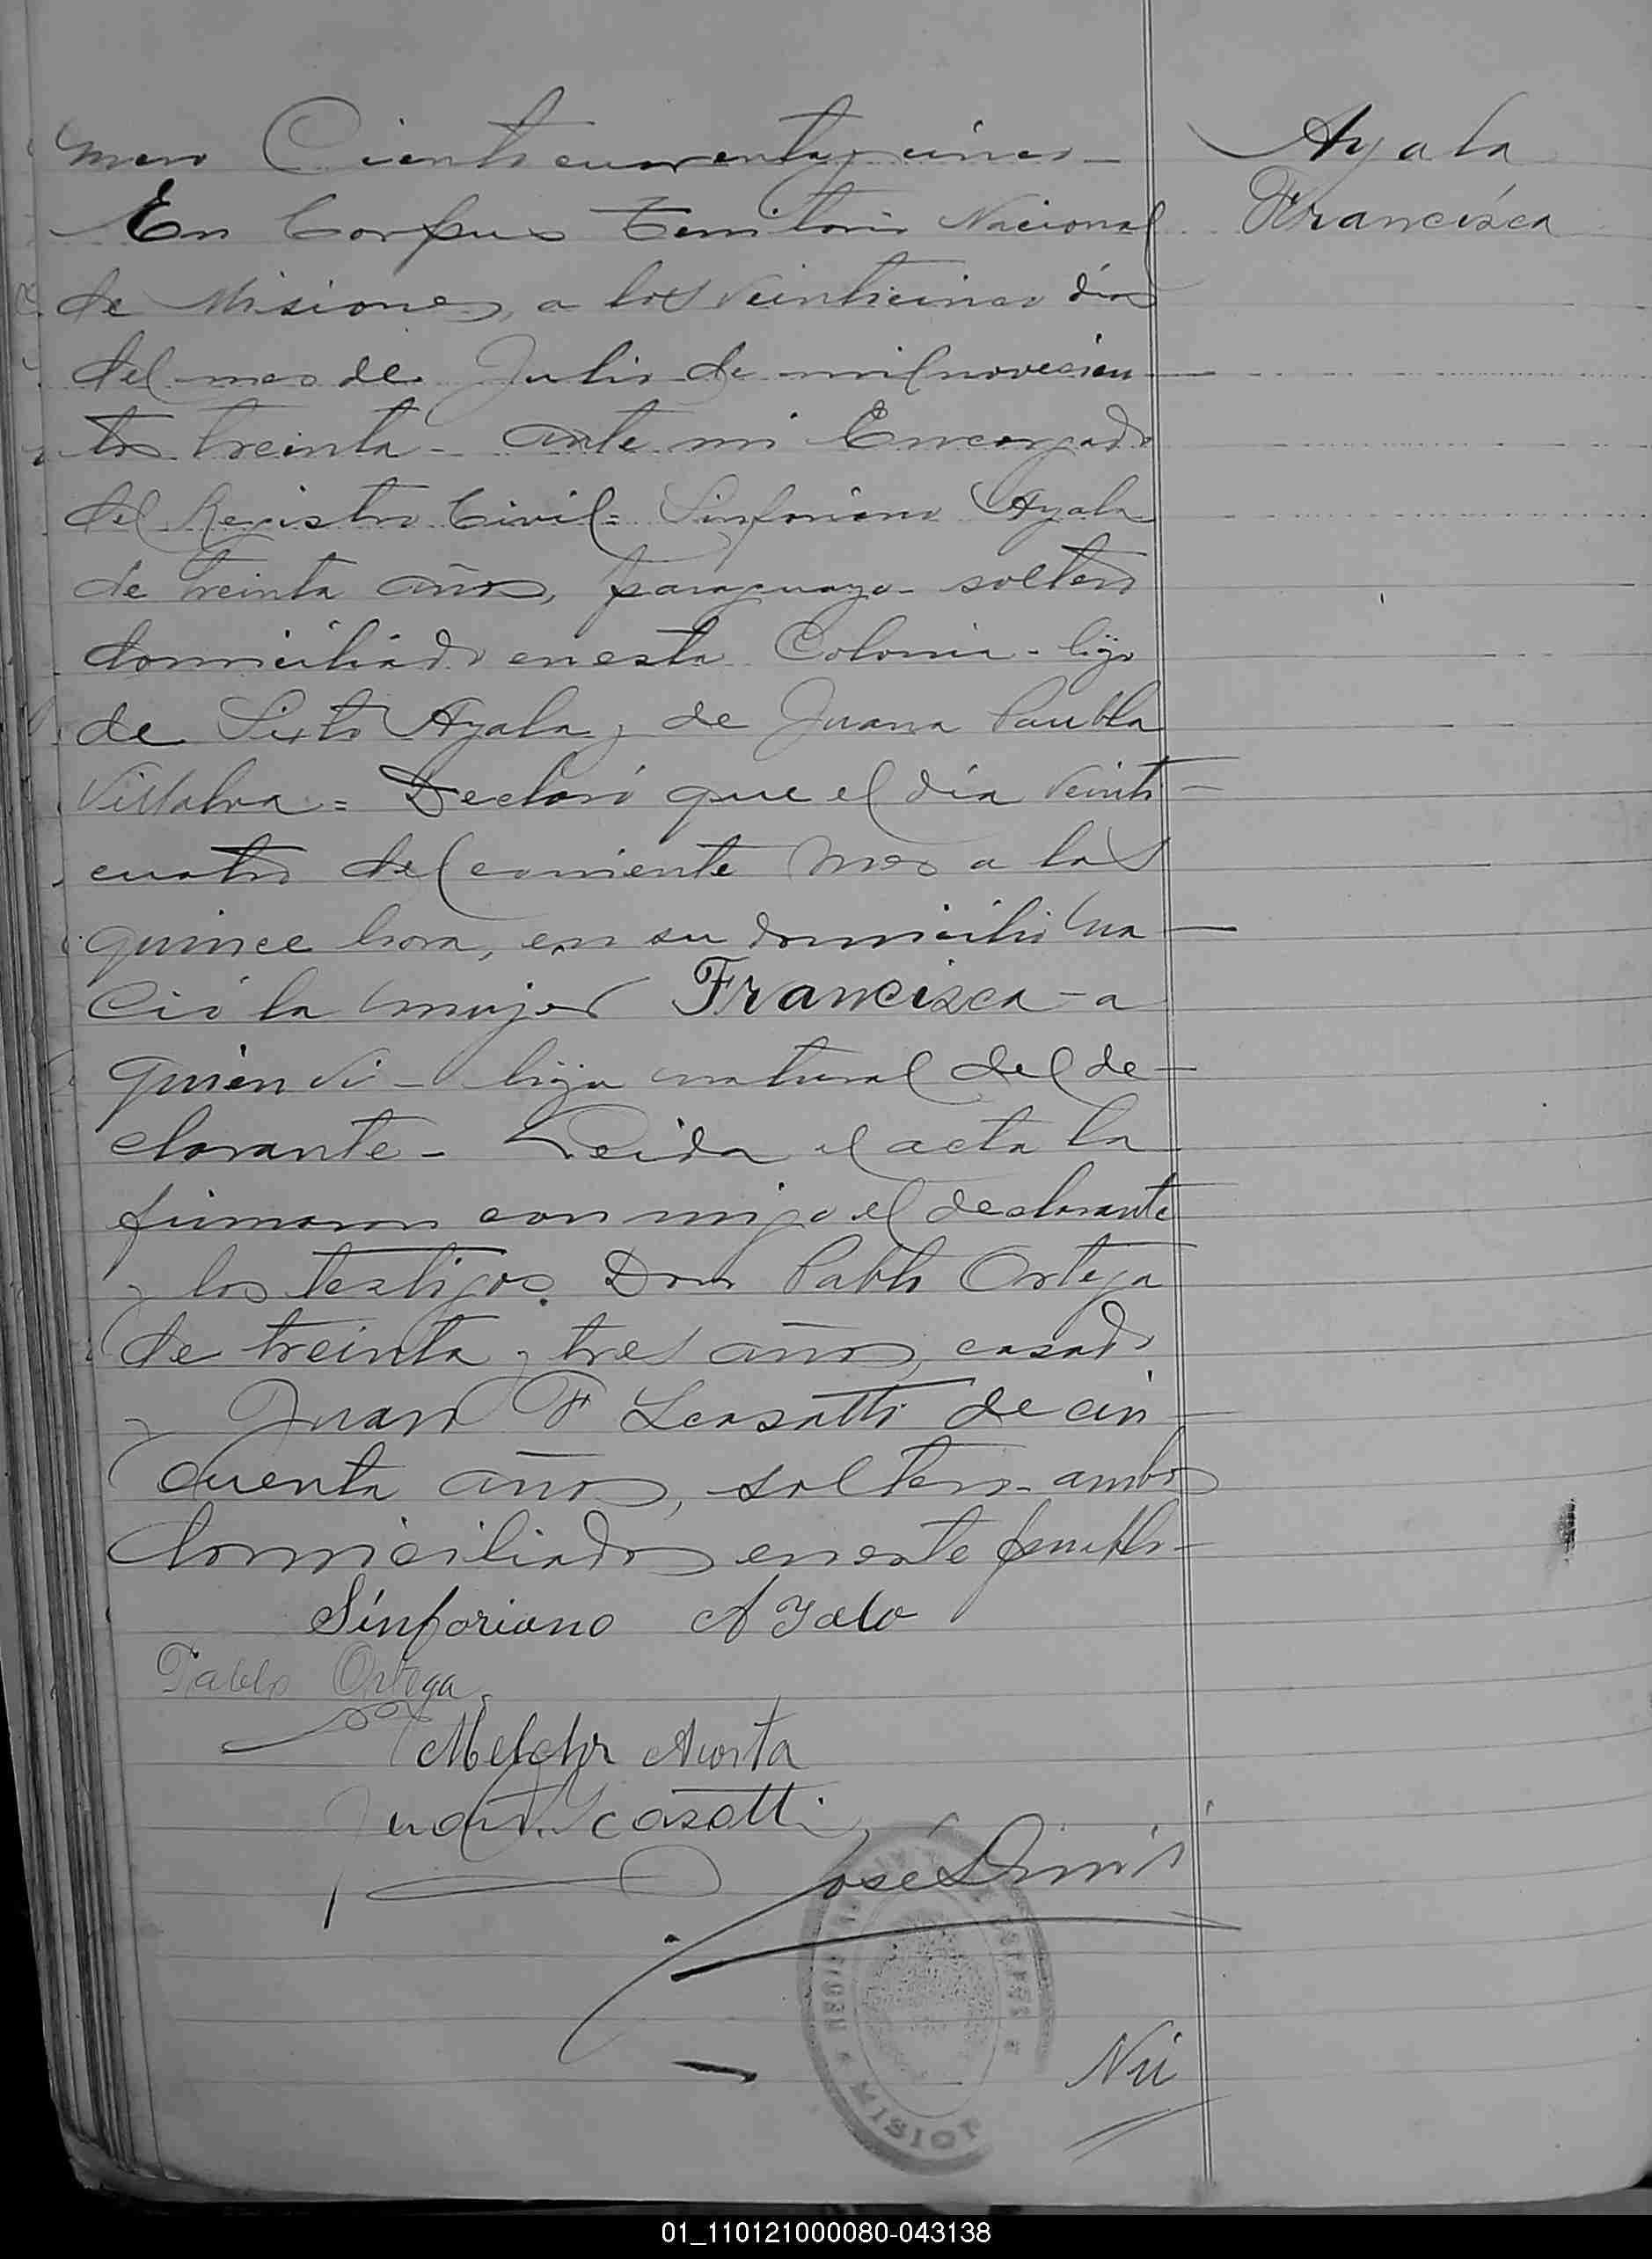 mero Ciento cuarenta y cinco —
Ayala
Francisca
En Corpus Territorio Nacional
de Misiones, a los veinticinco días
del mes de Julio de mil novecien
tos treinta - ante mi Encargado
del Registro Civil = Sinforiano Ayala
de treinta años, paraguayo - soltero
domiciliado en esta Colonia - hijo
de Sixto Ayala y de Juana Paubla
Villalva = Declaró que el día veinti
cuatro del corriente mes a las
quince hora, en su domicilio na
ció la mujer Francisca - a
quien vi - hija natural del de-
clarante - Leida el acta la
firmaron con migo el declarante
y los testigos Don Pablo Ortega
de treinta y tres años, casado
y Juan F Scasatti de cin
cuenta años, soltero - ambos
domiciliados en este pueblo -
Sinforiano Ayala
Pablo Ortega
Melchor Acosta
Juan F. Scasatti
José
Nú
MISION
01_110121000080-043138